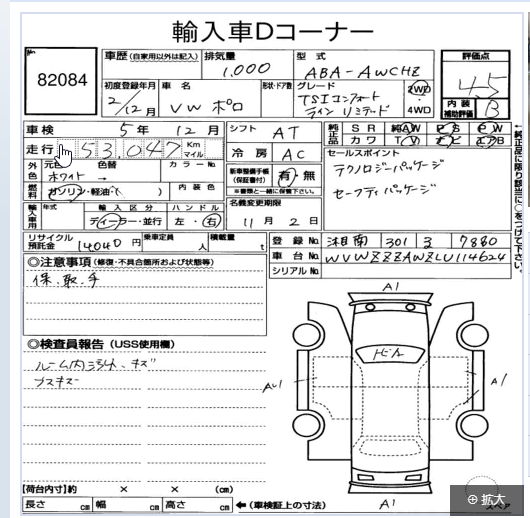 輸入車Dコーナー
No
82084
車歴 (自家用以外は記入) 排気量 1.000 型式 ABA-AWCHZ 評価点 4.5
初度登録年月 2/12月 車名 VW ポロ 形状・ドア数 グレード TSIコンフォート ライン リミテッド 2WD 4WD 内装補助評価 B
車検 5年 12月 シフト AT 純正品 SR 純AW PS PW
走行 53,047 Km マイル 冷房 AC カワ TV
外色 元色 ホワイト 色替 → カラーNo 新車整備手帳(保証書付) 有・無 セールスポイント
※書類と一緒に保管下さい。 テクノロジーパッケージ
燃料 ガソリン・軽油・( ) 内装色 セーフティパッケージ
輸入車用 年式 輸入区分 ハンドル 名義変更期限
ディーラー・並行 左・右 11月2日
リサイクル預託金 14040円 乗車定員 人 積載量 t 登録No. 湘南 301 7860
車台No.
シリアルNo.
◎注意事項 (修復・不具合箇所および状態等)
保、取、手
◎検査員報告 (USS使用欄)
A1
A1
A1
【荷台内寸】約 × × (cm)
長さ cm 幅 cm 高さ cm ←(車検証上の寸法)
スペア
←純正品に限り該当に○をつけて下さい。
拡大